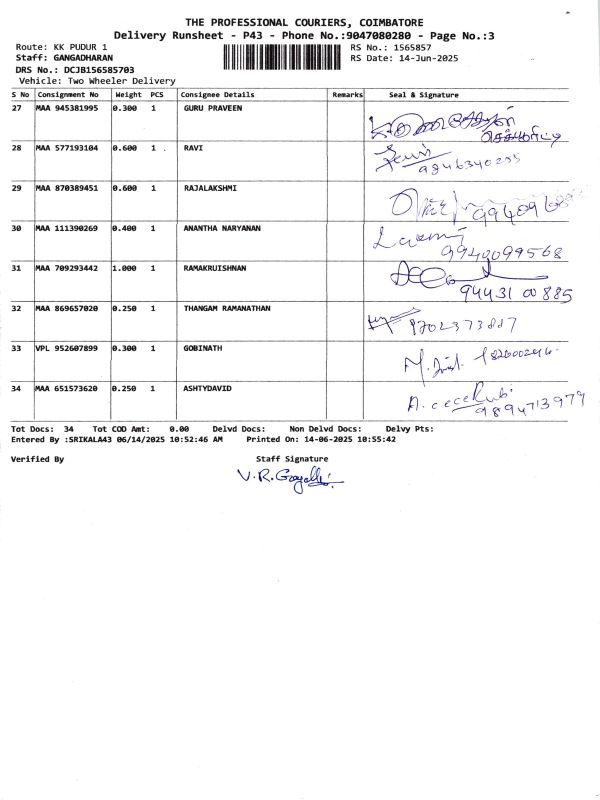 THE PROFESSIONAL COURIERS, COIMBATORE
Delivery Runsheet - P43 - Phone No.:9047080280 - Page No.:3
Route: KK PUDUR 1 RS No.: 1565857
Staff: GANGADHARAN RS Date: 14-Jun-2025
DRS No.: DCJB156585703
Vehicle: Two Wheeler Delivery
S No Consignment No Weight PCS Consignee Details Remarks Seal & Signature
27 MAA 945381995 0.300 1 GURU PRAVEEN
28 MAA 577193104 0.600 1 . RAVI
29 MAA 870389451 0.600 1 RAJALAKSHMI
30 MAA 111390269 0.400 1 ANANTHA NARYANAN
9940099568
31 MAA 709293442 1.000 1 RAMAKRUISHNAN
94431 00885
32 MAA 869657020 0.250 1 THANGAM RAMANATHAN
33 VPL 952607899 0.300 1 GOBINATH
34 MAA 651573620 0.250 1 ASHTYDAVID
9894713979
Tot Docs: 34 Tot COD Amt: 0.00 Delvd Docs: Non Delvd Docs: Delvy Pts:
Entered By :SRIKALA43 06/14/2025 10:52:46 AM Printed On: 14-06-2025 10:55:42
Verified By Staff Signature